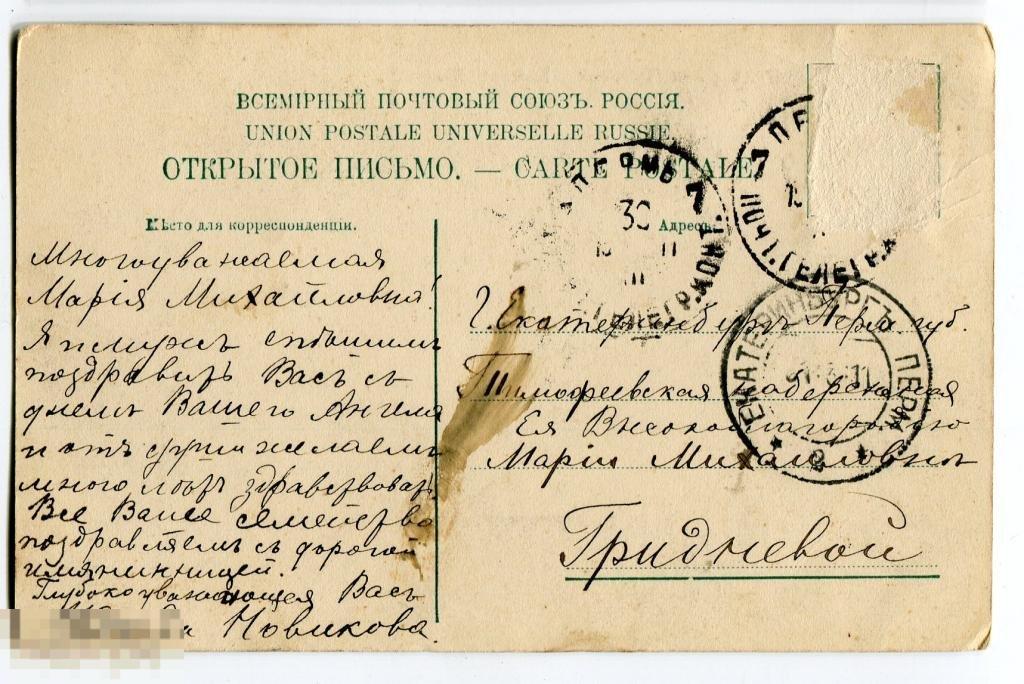 ВСЕМІРНЫЙ ПОЧТОВЫЙ СОЮЗЪ. РОССІЯ.
UNION POSTALE UNIVERSELLE RUSSIE.
ОТКРЫТОЕ ПИСЬМО. — CARTE POSTALE
Мѣсто для корреспонденціи.
Адресъ
Многоуважаемая
Марія Михайловна!
Я и мужъ спѣшимъ
поздравить Васъ съ
днемъ Вашего Ангела
и отъ души желаемъ
много лѣтъ здравствовать.
Все Ваше семейство
поздравляемъ съ дорогой
имянинницей.
Глубоко уважающая Васъ
Новикова.
Г. Екатеринбургъ Перм. губ.
Тимофеевская набережная
Ея Высокоблагородію
Маріи Михайловнѣ
Гридневой
ПЕРМЬ 7
30
11
ТЕЛЕГР. КОНТ.
7 ПЕ
ПОЧТ. ТЕЛЕГР. К
ЕКАТЕРИНБУРГЪ ПЕРМ
* 2 *
11